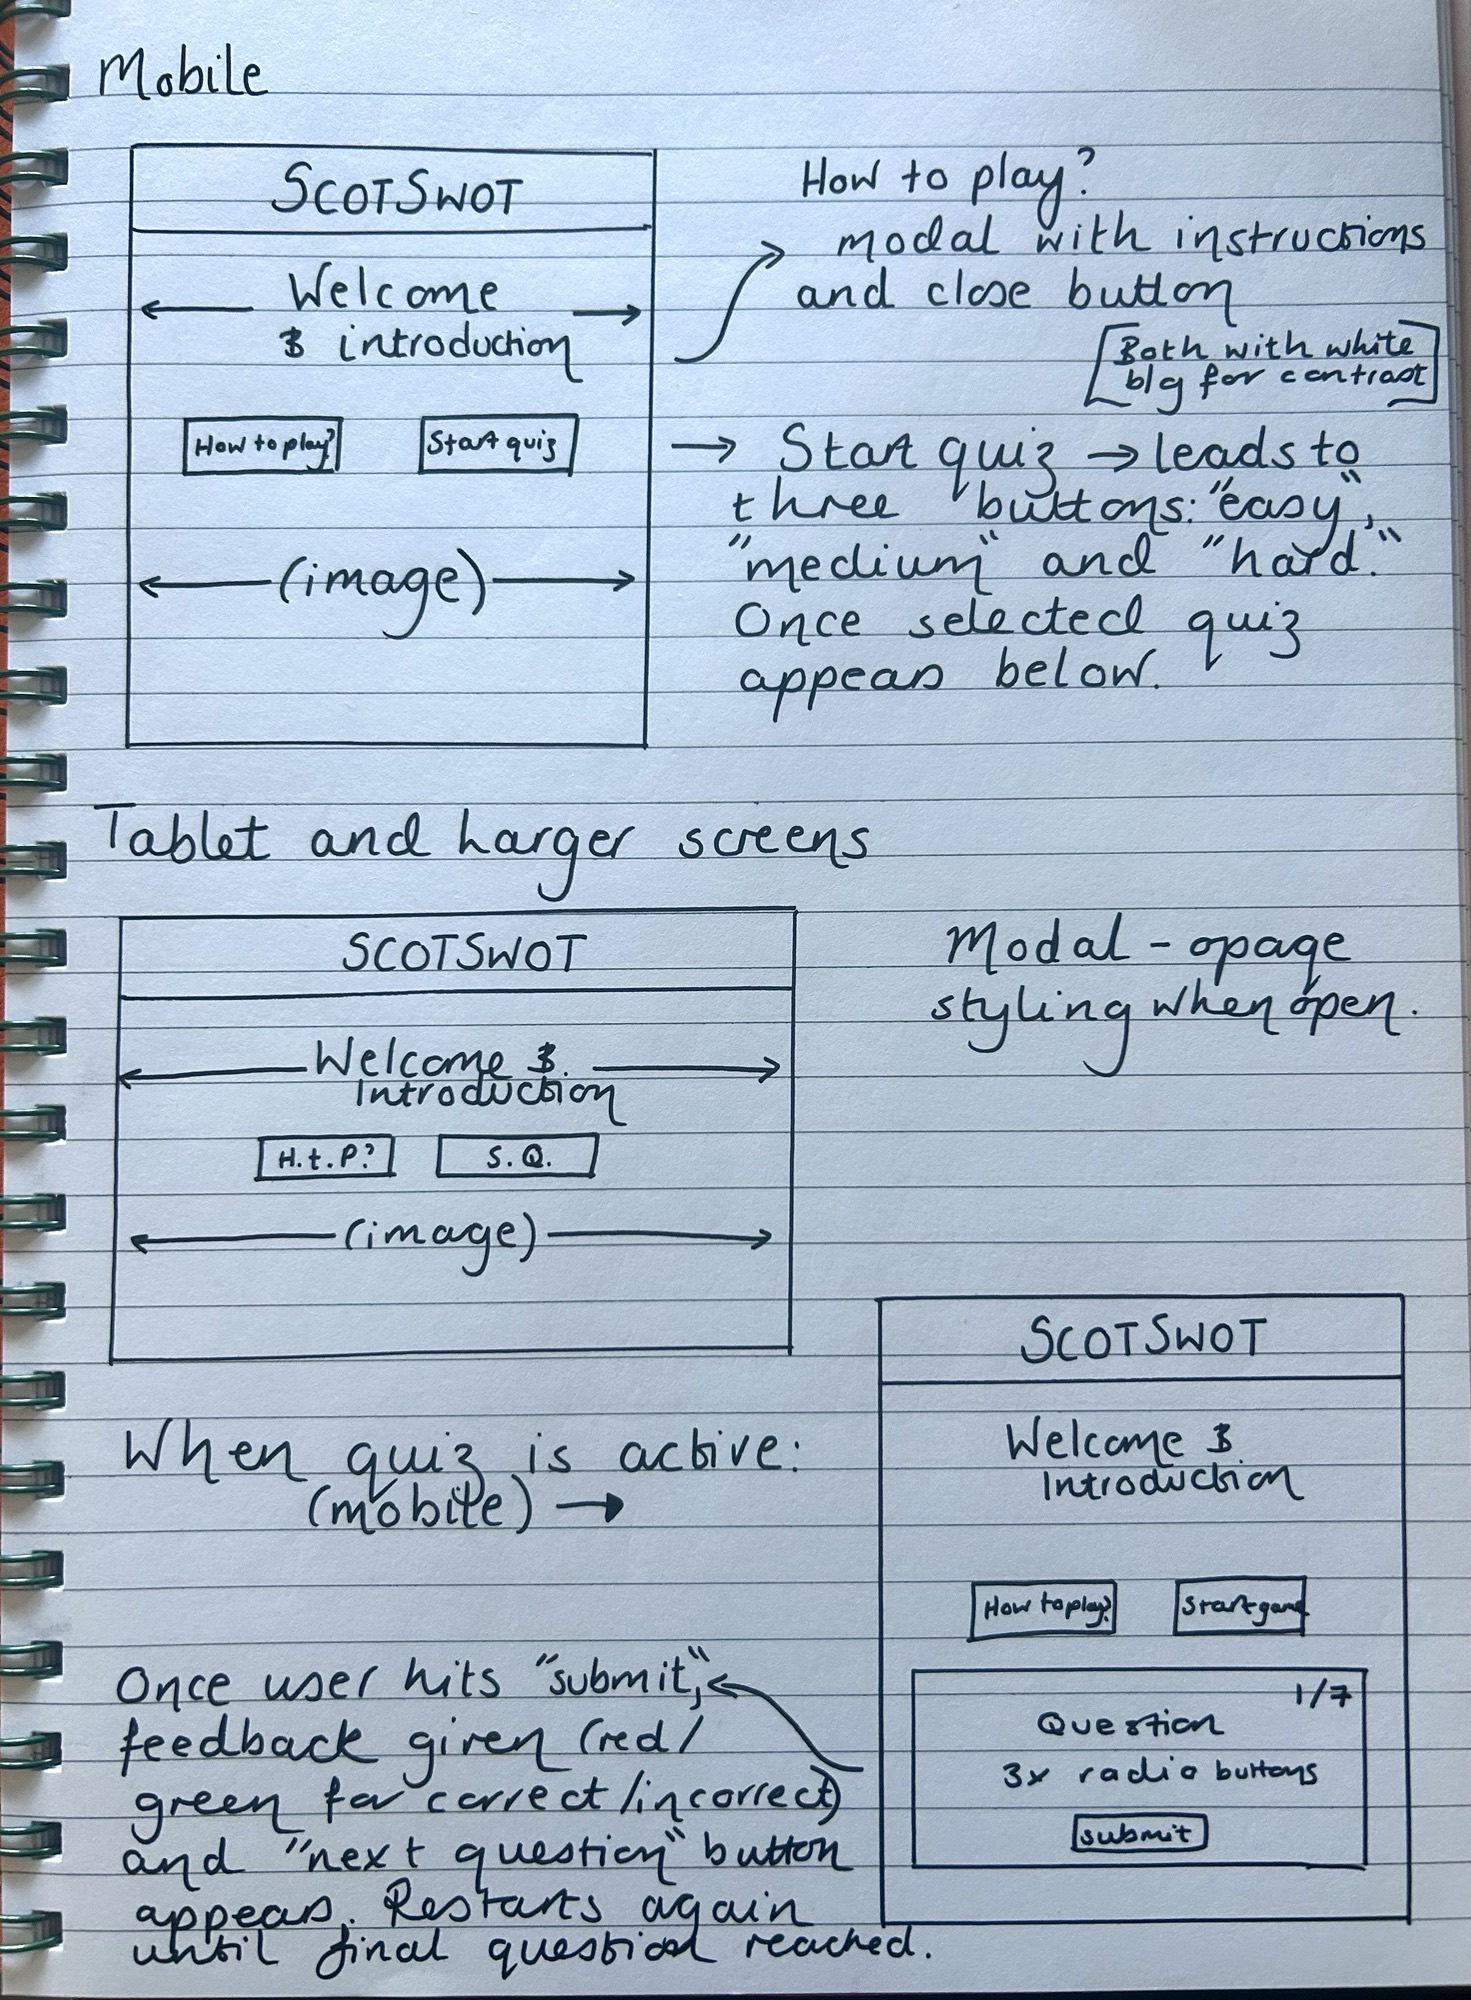 Mobile
SCOTSWOT
Welcome
& introduction
How to play?
Start quiz
(image)
How to play?
modal with instructions
and close button
[Both with white
b/g for contrast]
→ Start quiz → leads to
three buttons: "easy",
"medium" and "hard."
Once selected quiz
appears below.
Tablet and larger screens
SCOTSWOT
Welcome &
Introduction
H.t.P?
S.Q.
(image)
Modal - opaqe
styling when open.
When quiz is active:
(mobile) →
SCOTSWOT
Welcome &
Introduction
How to play?
Start game
1/7
Question
3x radio buttons
submit
Once user hits "submit,"
feedback given (red/
green for correct/incorrect)
and "next question" button
appears. Restarts again
until final question reached.